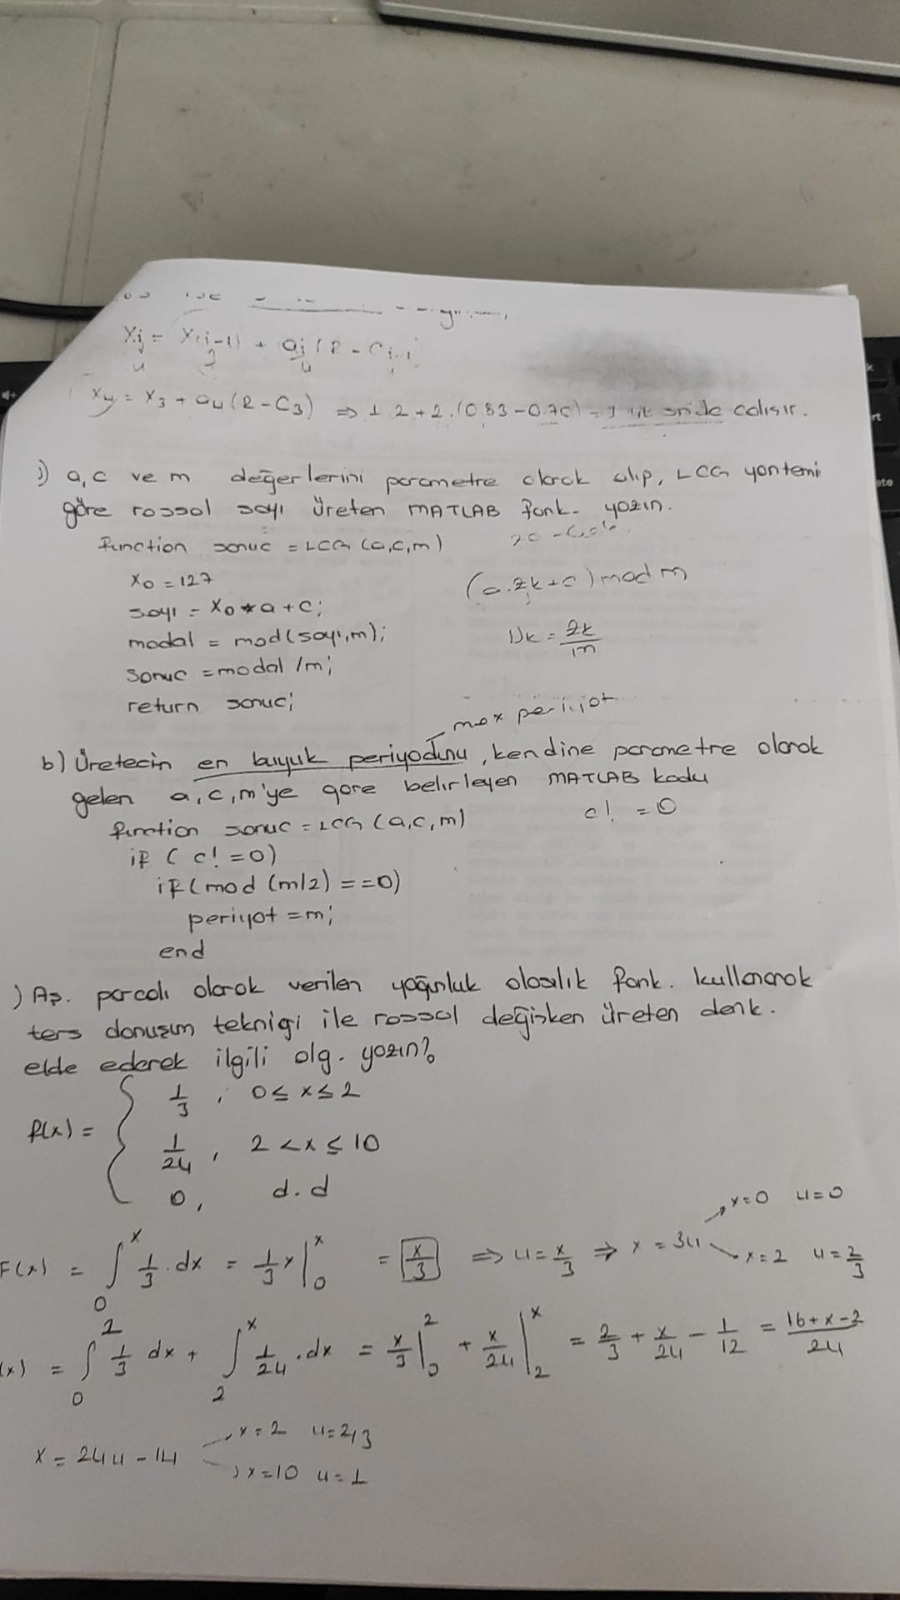 Xj = X(j-1) + aj (R - Cj-1)
X4 = X3 + a4 (R - C3) ⇒ 1.2 + 2.(0.83-0.70) = çalışır.
) a,c ve m değerlerini parametre olarak alıp, LCG yöntemi
göre rassal sayı üreten MATLAB fonk. yazın.
function sonuc = LCG (a,c,m)
x0 = 127
(a.zk+c) mod m
sayı = x0*a+c;
modal = mod(sayı,m);
Uk = zk/m
sonuc = modal /m;
return sonuc;
max periyot
b) Üretecin en büyük periyodunu, kendine parametre olarak
gelen a,c,m'ye göre belirleyen MATLAB kodu
function sonuc = LCG (a,c,m)
c! = 0
if ( c! = 0)
if (mod (m/2) ==0)
periyot = m;
end
) Aş. parçalı olarak verilen yoğunluk olasılık fonk. kullanarak
ters dönüşüm tekniği ile rassal değişken üreten denk.
elde ederek ilgili alg. yazın?
f(x) = { 1/3 , 0 ≤ x ≤ 2
1/24 , 2 < x ≤ 10
0, d.d
F(x) = ∫₀ˣ 1/3 . dx = 1/3 x |₀ˣ = x/3 ⇒ u = x/3 ⇒ x = 3u
x=0 u=0
x=2 u=2/3
(x) = ∫₀² 1/3 dx + ∫₂ˣ 1/24 . dx = x/3 |₀² + x/24 |₂ˣ = 2/3 + x/24 - 1/12 = 16+x-2/24
x = 24u - 14
x=2 u=2/3
x=10 u=1